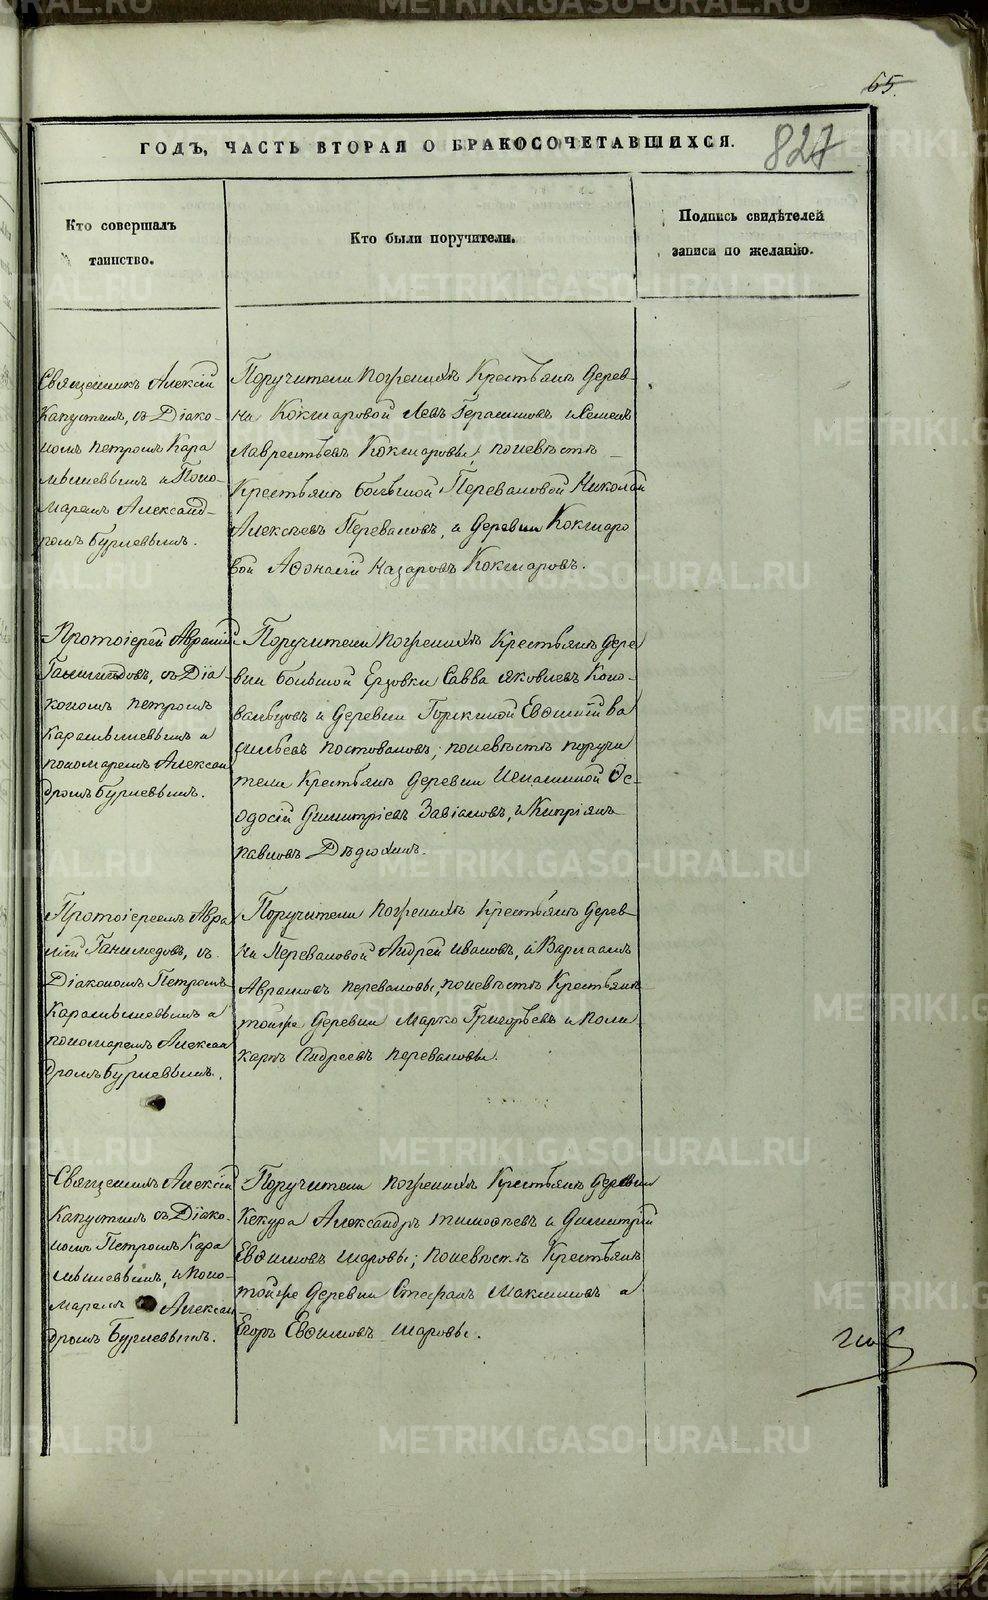 65.
827
ГОДЪ, ЧАСТЬ ВТОРАЯ О БРАКОСОЧЕТАВШИХСЯ.
Кто совершалъ
таинство.
Кто были поручители.
Подпись свидѣтелей
записи по желанію.
Священникъ Алексій
Капустинъ, съ Діако-
номъ Петромъ Кара
мышевымъ и Поно-
маремъ Александ-
ромъ Бурневымъ.
Поручители по женихѣ Крестьяне дерев-
ни Кокшаровой Левъ Герасимовъ и Семенъ
Лаврентьевъ Кокшаровы; по невѣстѣ
Крестьяне большой Переваловой Николай
Алексѣевъ Переваловъ, и деревни Кокшаро
вой Афонасій Назаровъ Кокшаровъ.
Протоіерей Аврамій
Ганимедовъ, съ Діа-
кономъ Петромъ
Карамышевымъ и
пономаремъ Алексан
дромъ Бурневымъ.
Поручители по женихѣ Крестьяне дере
вни большой Ерзовки Савва Яковлевъ Коно-
вальцовъ и деревни Горкиной Евфимій Ва
сильевъ Постоваловъ; по невѣстѣ поручи
тели Крестьяне деревни Ѳе-
одосій Димитріевъ Завіаловъ, и Кипріянъ
Павловъ Дѣдюхинъ.
Протоіереемъ Авра
мій Ганимедовъ, съ
Діакономъ Петромъ
Карамышевымъ и
пономаремъ Алексан
дромъ Бурневымъ.
Поручители по женихѣ Крестьяне дерев-
ни Переваловой Андрей Ивановъ, и Варлаамъ
Аврамовъ Переваловы, по невѣстѣ Крестьяне
тойже деревни Марко Григорьевъ и Поли
карпъ Андреевъ Переваловы.
Священникъ Алексій
Капустинъ съ Діако-
номъ Петромъ Кара
мышевымъ, и Поно-
маремъ Алексан
дромъ Бурневымъ.
Поручители по женихѣ Крестьяне деревни
Кекура Александръ Тимофеевъ и Димитрій
Евфимовъ Шаровы; по невѣстѣ Крестьяне
тойже деревни Стефанъ Максимовъ и
Егоръ Евфимовъ Шаровы.
METRIKI.GASO-URAL.RU